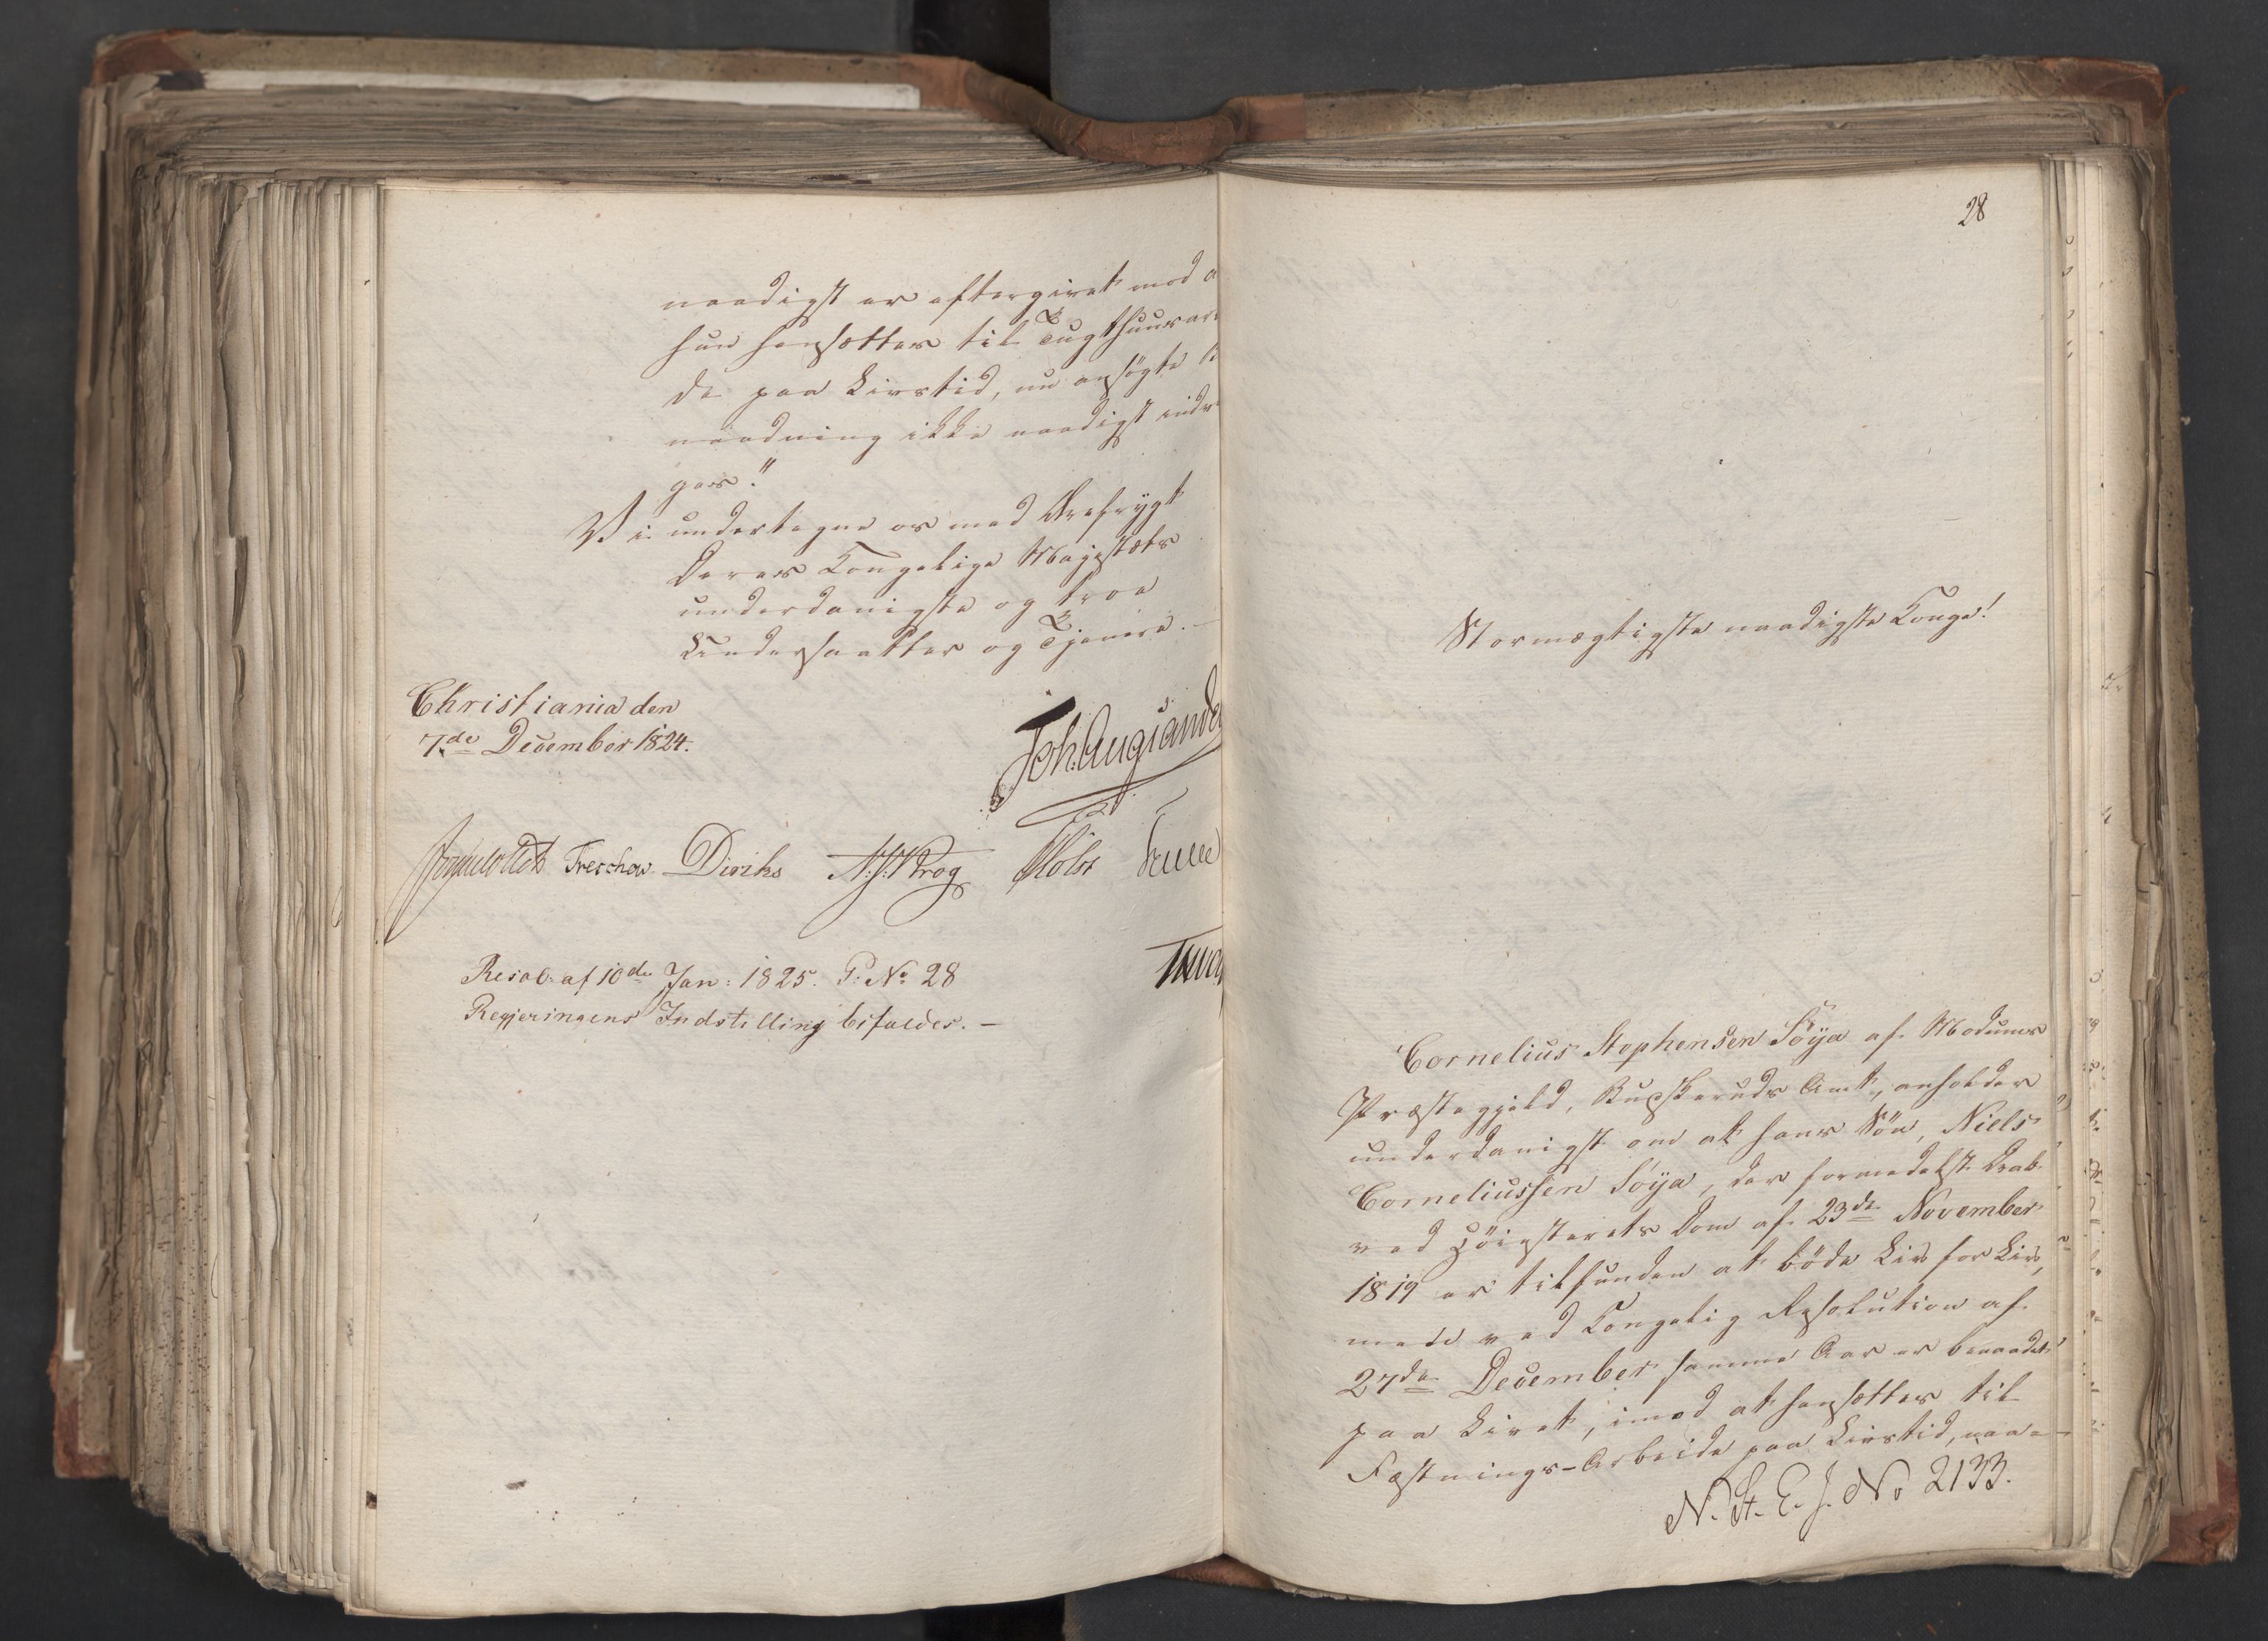 naadigst er eftergivet mod a
hun hensættes til Tugthuusar
de paa Livstid, nu ansøgte B
naadning ikke naadigst indvil
ges."
Vi undertegne os med Ærefrygt
Deres Kongelige Majestæts
underdanigste og troe
Undersaatter og Tjenere.
Christiania den
7de December 1824.
Joh. Aug. Sande
Treschow Diriks Holst
Resol: af 10de Jan: 1825. P: No 28
Regjeringens Indstilling bifaldes. –
28
Stormægtigste naadigste Konge!
Cornelius Stephensen Söya af Modums
Præstegjeld, Buskeruds Amt, anholder
underdanigst om at hans Sön, Niels
Corneliussen Söya, der formedelst Drab
ved Höiesterets Dom af 23de November
1819 er tilfunden at böde Liv for Liv,
men ved Kongelig Resolution af
27de December samme Aar er benaadet
paa Livet, imod at hensættes til
Fæstnings-Arbeide paa Livstid, naa-
N. St. E. J. No 2133.